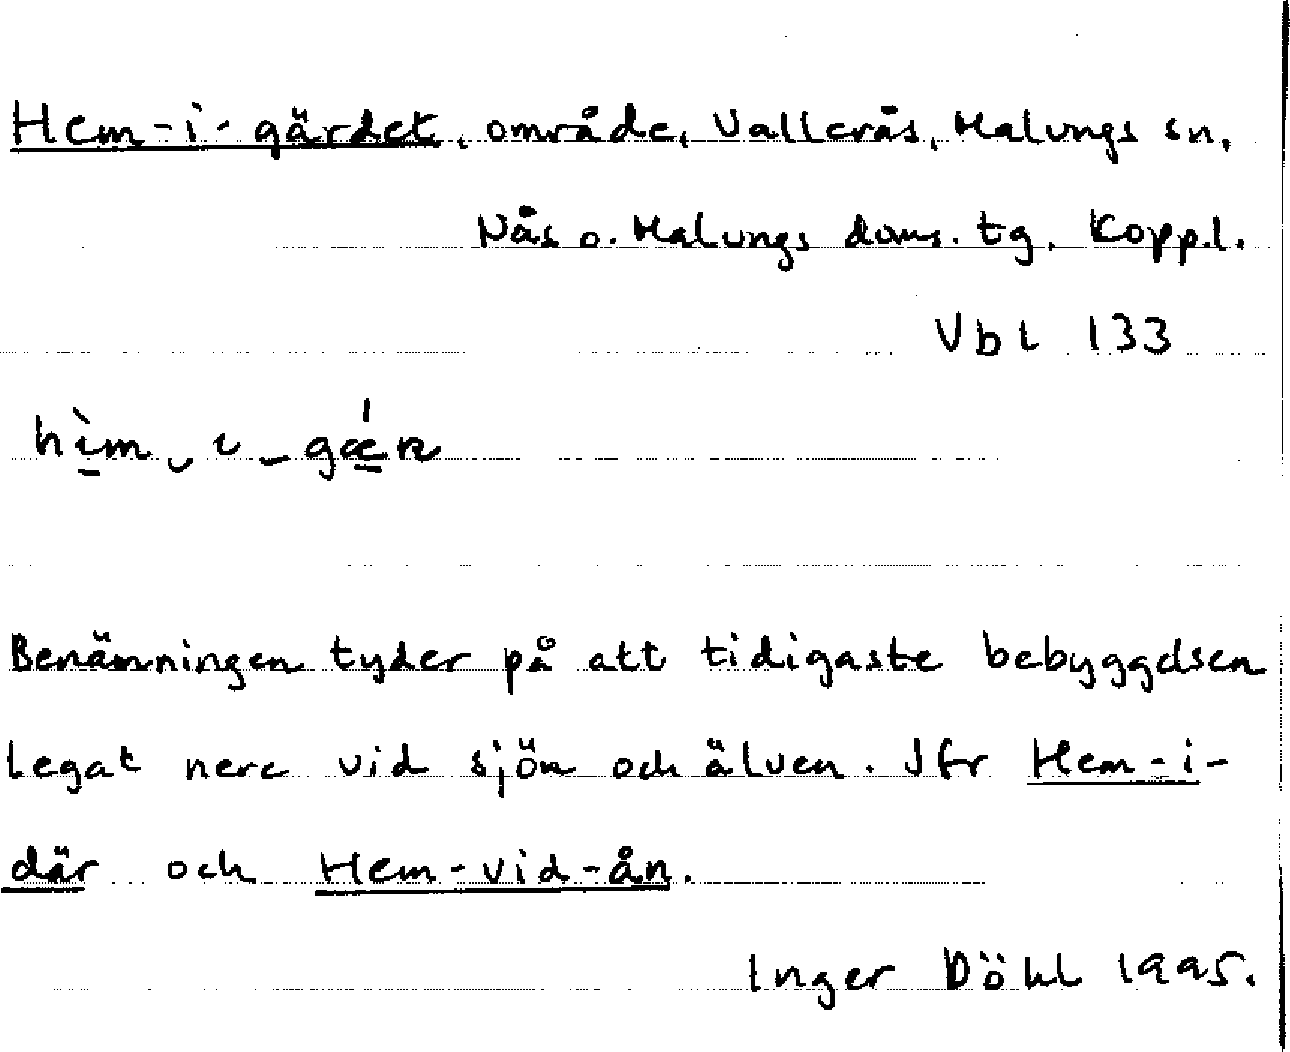 Hem-i-gärdet, område, Vallerås, Malungs sn,
Nås o. Malungs doms. tg. Kopp.l.
Vbl 133
Benämningen tyder på att tidigaste bebyggelsen
legat nere vid sjön och älven. Jfr Hem-i-
där och Hem-vid-ån.
Inger Döhl 1995.